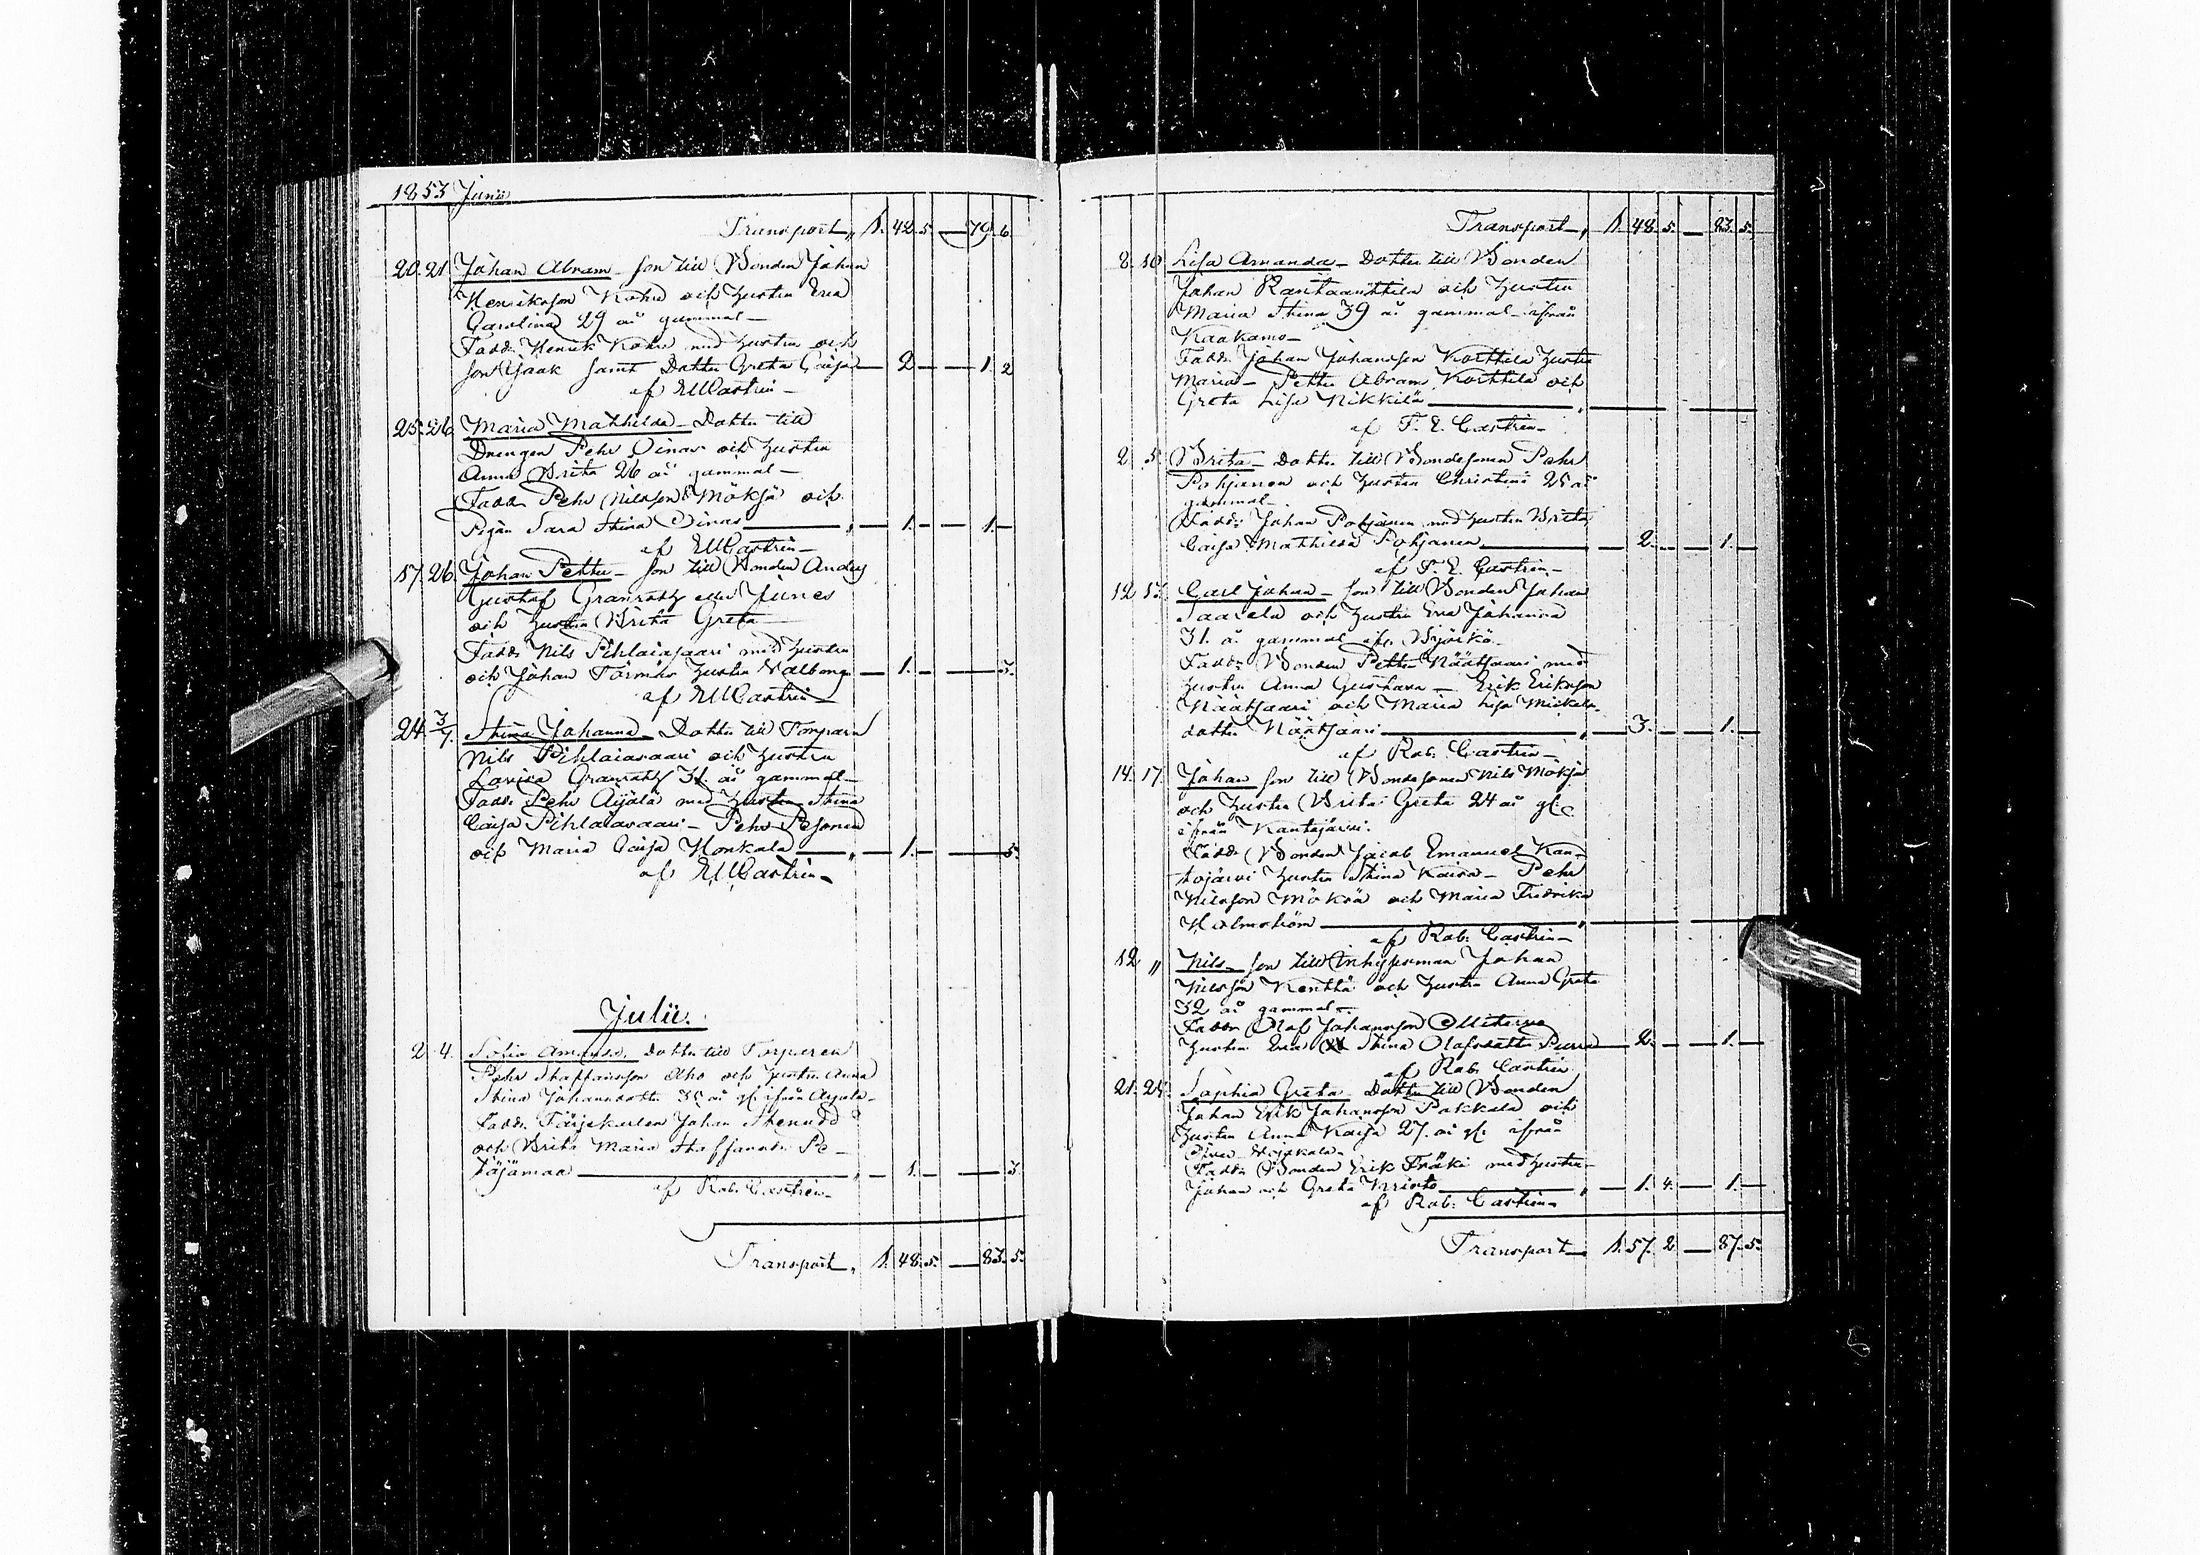 1853 Junii
Transport, 1. 42. 5. — 79. 6.
20. 21. Johan Abram – son till Bonden Johan
Henriksson och hustru Eva
Carolina 29 år gammal –
Fadd: Henrik med hustru och
son Isaak samt Dotter Greta Caisa — 2 — — 1. 2
af EMCastrén –
25. 26. Maria Mathilda – Dotter till
Drengen Pehr Oinas och hustru
Anna Brita 26 år gammal –
Fadd: Pehr Nilsson Mökjä och
Pigan Sara Stina Oinas — 1. — — 1. —
af EMCastrén –
17. 26. Johan Petter – son till Bonden Anders
Gustaf Granroth eller Junes
och hustru Brita Greta –
Fadd: Nils Pihlajasaari med hustru
och Johan Törmä hustru Walborg — 1. — — 3.
af EMCastrén
24. 3/7. Stina Johanna – Dotter till Torparen
Nils Pihlaiasaari och hustru
Lovisa Granroth 31. år gammal –
Fadd: Pehr Äijälä med hustru Stina
Caisa Pihlaiasaari – Pehr Pesonen
och Maria Caisa Honkala — 1. — — 5.
af EMCastrén –
Julii.
2. 4. Sofia Amanda. Dotter till Torparen
Pehr Staffansson Aho och hustru Anna
Stina Johansdotter 35 år gl. ifrån
Fadd: Färjekarlen Johan Stenudd
och Brita Maria Staffansdr: Pe-
täjämaa — 1. — — 3.
af Rob. Castrén –
Transport, 1. 48. 5. — 83. 5.
Transport, 1. 48. 5. — 83. 5.
8. 10 Lisa Amanda – Dotter till Bonden
Johan Rantaanttila och hustru
Maria Stina 39 år gammal – ifrån
Kaakamo –
Fadd: Johan Johansson Korttila hustru
Maria – Petter Abram Korttila och
Greta Lisa Nikkilä —
af F. E. Castrén –
2. 5. Brita – Dotter till Bondesonen Pehr
Pohjanen och hustru Christina 25 år
gammal –
Fadd: Johan Pohjanen med hustru Brita
Caisa Mathilda Pohjanen — 2. — — 1. —
af F. E. Castrén –
12. 13. Carl Johan – son till Bonden Johan
Saarela och hustru Eva Johanna
31. år gammal ifr.
Fadd: Bonden Petter Näätsaari med
hustru Anna Gustava – Erik Eriksson
Näätsaari och Maria Lisa Mickels-
dotter Näätsaari — 3. — — 1. —
af Rob. Castrén –
14. 17. Johan son till Bondesonen Nils Mökjä
och hustru Brita Greta 24 år gl.
ifrån Kantojärvi.
Fadd: Bonden Jacob Emanuel Kan-
tojärvi hustru Stina Kaisa – Pehr
Nilsson Mökjä och Maria Fredrika
Holmström —
af Rob: Castrén –
12 " Nils – son till Inhysesman Johan
Nilsson Kenttä och hustru Anna Greta
32 år gammal –
Fadd: Olof Johansson
hustru Eva Stina Olofsdotter Purra — 2. — — 1. —
af Rob. Castrén
21. 24. Sophia Greta. Dotter till Bonden
Johan Erik Johansson Pakkala och
hustru Anna Kaisa 27. år gl. ifrån
Wojakkala –
Fadd: Bonden Erik Fräki med hustru –
Johan och Greta Kristo — 1. 4. — 1. —
af Rob: Castrén –
Transport – 1. 57. 2 — 87. 5.